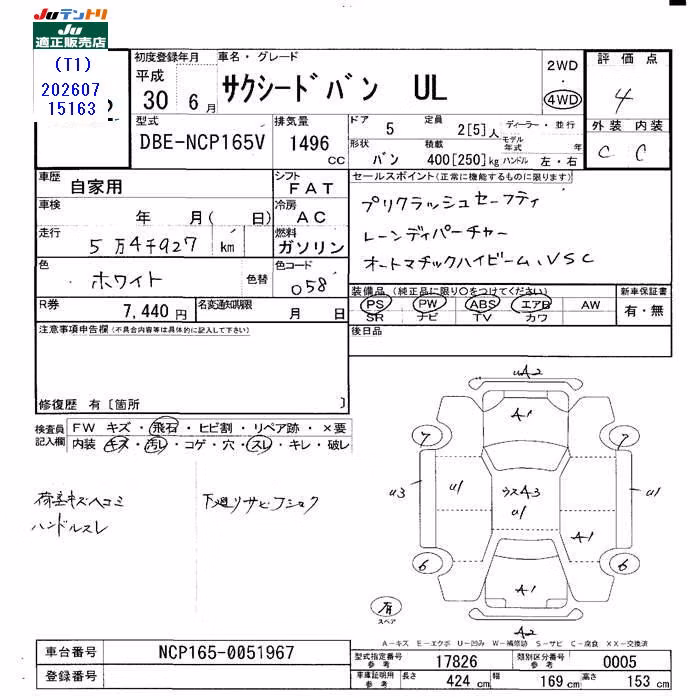 Juテントリ
Ju
適正販売店
(T1)
202607
15163
初度登録年月
平成
30 6月
車名・グレード
サクシードバン UL
2WD
・
4WD
評価点
4
外装 内装
C C
型式
DBE-NCP165V
排気量
1496
CC
ドア 5
定員 2[5]人
ディーラー・並行
モデル年式 年
形状 バン
積載 400[250]kg
ハンドル 左・右
車歴 自家用
シフト FAT
車検 年 月( 日)
冷房 AC
走行 5万4千927 km
燃料 ガソリン
色 ホワイト 色替
色コード 058
R券 7,440円
名変通知期限 月 日
セールスポイント(正常に機能するものに限ります)
プリクラッシュセーフティ
レーンディパーチャー
オートマチックハイビーム、VSC
装備品 (純正品に限り○をつけてください)
PS PW ABS エアB AW
SR ナビ TV カワ
新車保証書
有・無
後日品
注意事項申告欄(不具合内容等は具体的に記入して下さい)
修復歴 有〔箇所 〕
検査員記入欄
FW キズ・飛石・ヒビ割・リペア跡・×要
内装 キズ・汚レ・コゲ・穴・スレ・キレ・破レ
荷室キズヘコミ
ハンドルスレ
下廻りサビフショク
uA2
A1
7 7
u3 u1 ウスA3 u1
u1
A1
6 6
A1
有
スペア
A2
A-キズ E-エクボ U-凹み W-補修跡 S-サビ C-腐食 XX-交換済
車台番号 NCP165-0051967
登録番号
型式指定番号 参考 17826
類別区分番号 参考 0005
車庫証明用 参考 長さ 424 cm 幅 169 cm 高さ 153 cm